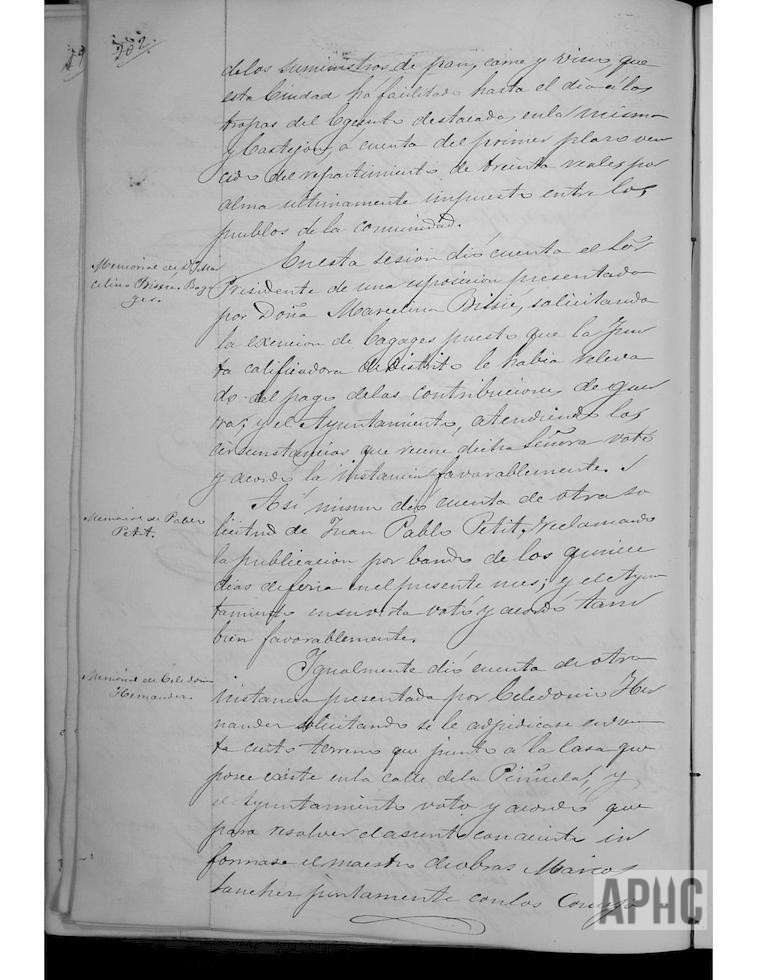 202.
de los suministros de pan, carne y vino, que
esta Ciudad ha facilitado hasta el dia á las
tropas del Egercito destacadas en la misma
y Castejon, á cuenta del primer plazo ven
cido del repartimiento de treinta reales por
alma ultimamente impuesto entre los
pueblos de la comunidad.
Memorial de Dª Mar
celina Bissié. Baga
ges.
En esta sesion dió cuenta el Sor
Presidente de una esposicion presentada
por Doña Marcelina Bissié, solicitando
la exencion de bagages puesto que la Jun
ta calificadora de Distrito le habia releva
do del pago de las contribuciones de guer
ra; y el Ayuntamiento, atendiendo las
circunstancias que reune dicha Señora votó
y acordó la instancia favorablemente.
Memorial de Pablo
Petit.
Asi mismo dió cuenta de otra so
licitud de Juan Pablo Petit, reclamando
la publicacion por bando de los quince
dias de feria en el presente mes; y el Ayun
tamiento en su vista votó y acordó tam
bien favorablemente.
Memorial de Celedonio
Hernandez.
Igualmente dió cuenta de otra
instancia presentada por Celedonio Her
nandez solicitando se le adjudicase en ven
ta cierto terreno que junto á la casa que
posee existe en la calle de la Piñuela, y
el Ayuntamiento votó y acordó que
para resolver el asunto con acierto in
formase el maestro de obras Marcos
Sanchez juntamente con los Consejo
APHC